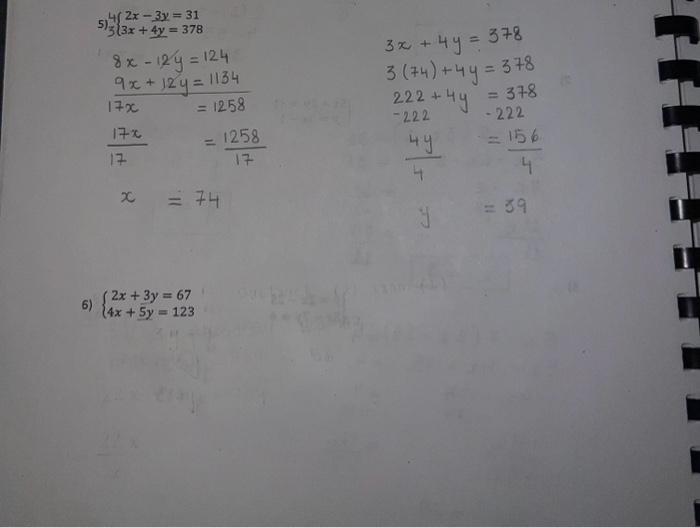 5) 4{ 2x − 3y = 31
3{ 3x + 4y = 378
8x - 12y = 124
9x + 12y = 1134
17x = 1258
17x/17 = 1258/17
x = 74
3x + 4y = 378
3(74) + 4y = 378
222 + 4y = 378
-222 -222
4y/4 = 156/4
y = 39
6) { 2x + 3y = 67
{ 4x + 5y = 123